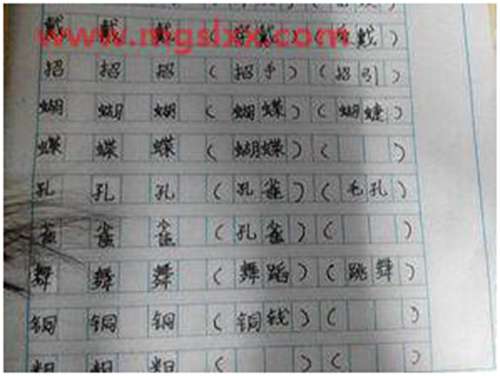 www.mgslxx.com
戴 戴 戴 ( 戴 ) ( 戴 )
招 招 招 ( 招手 ) ( 招引 )
蝴 蝴 蝴 ( 蝴蝶 ) ( 蝴蝶 )
蝶 蝶 蝶 ( 蝴蝶 ) ( )
孔 孔 孔 ( 孔雀 ) ( 毛孔 )
雀 雀 雀 ( 孔雀 ) ( )
舞 舞 舞 ( 舞蹈 ) ( 跳舞 )
铜 铜 铜 ( 铜钱 ) ( )
粗 粗 粗 ( ) (